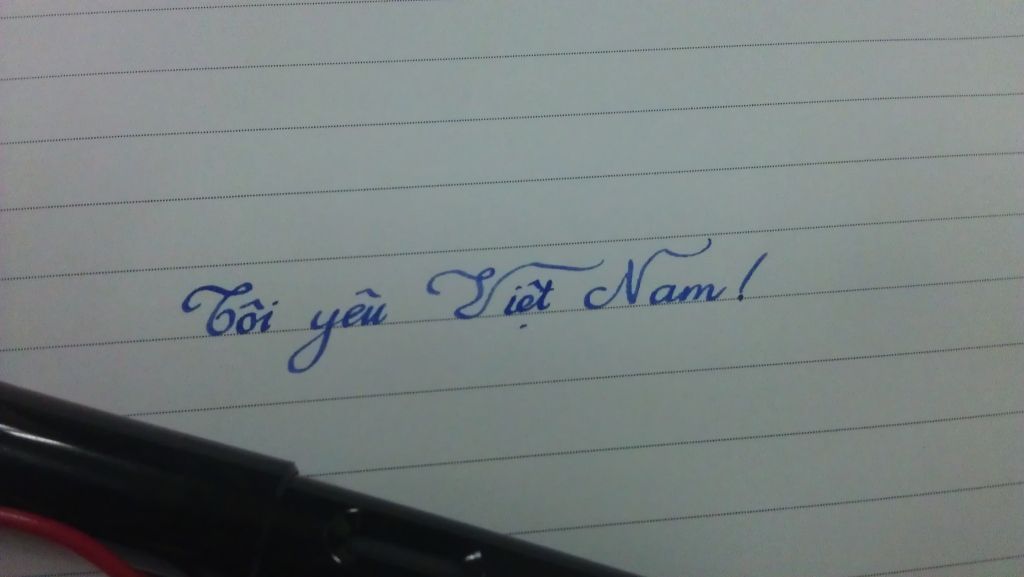 Tôi yêu Việt Nam!